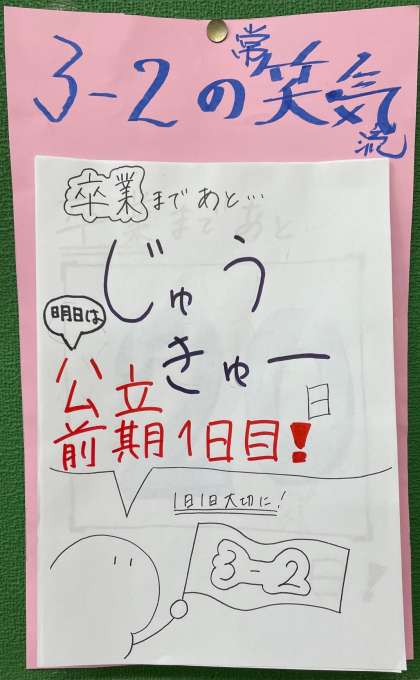 3-2の常笑気流
卒業まであと…
じゅう
きゅー
日
明日は
公立
前期1日目!
1日1日大切に!
3-2